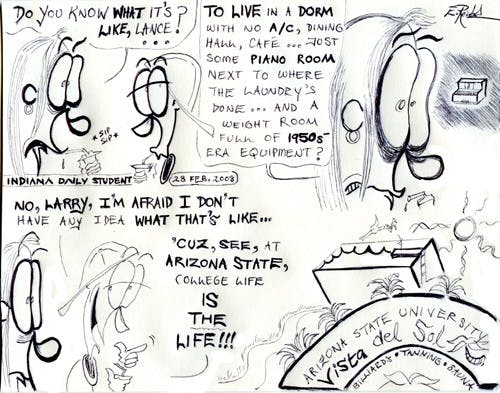 DO YOU KNOW WHAT IT'S
LIKE, LANCE?
...
TO LIVE IN A DORM
WITH NO A/C, DINING
HALL, CAFE ... JUST
SOME PIANO ROOM
NEXT TO WHERE
THE LAUNDRY'S
DONE... AND A
WEIGHT ROOM
FULL OF 1950s-
ERA EQUIPMENT?
*SIP
SIP*
INDIANA DAILY STUDENT
28 FEB. 2008
NO, LARRY, I'M AFRAID I DON'T
HAVE ANY IDEA WHAT THAT'S LIKE...
'CUZ, SEE, AT
ARIZONA STATE,
COLLEGE LIFE
IS
THE
LIFE!!!
ARIZONA STATE UNIVERSITY
Vista del Sol
BILLIARDS • TANNING • SAUNA